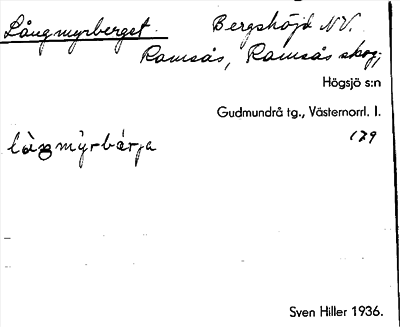 Långmyrberget. Bergshöjd NV.
Ramsås, Ramsås skog;
Högsjö s:n
Gudmundrå tg., Västernorrl. l.
179
làŋmy̆rbárja
Sven Hiller 1936.